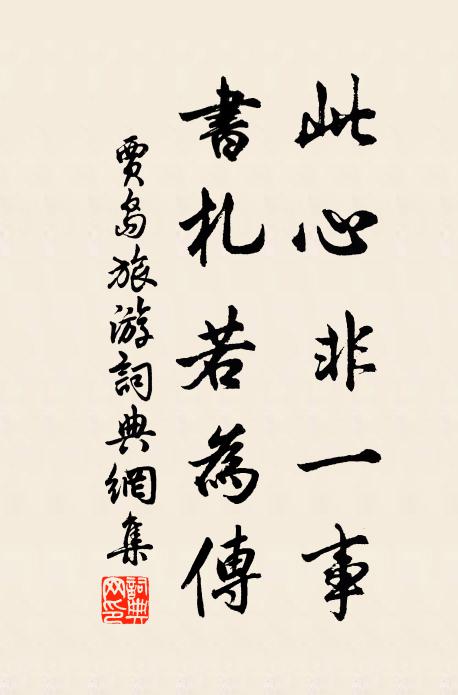 此心非一事
書札若為傳
賈島旅游詞典網集
詞典網印